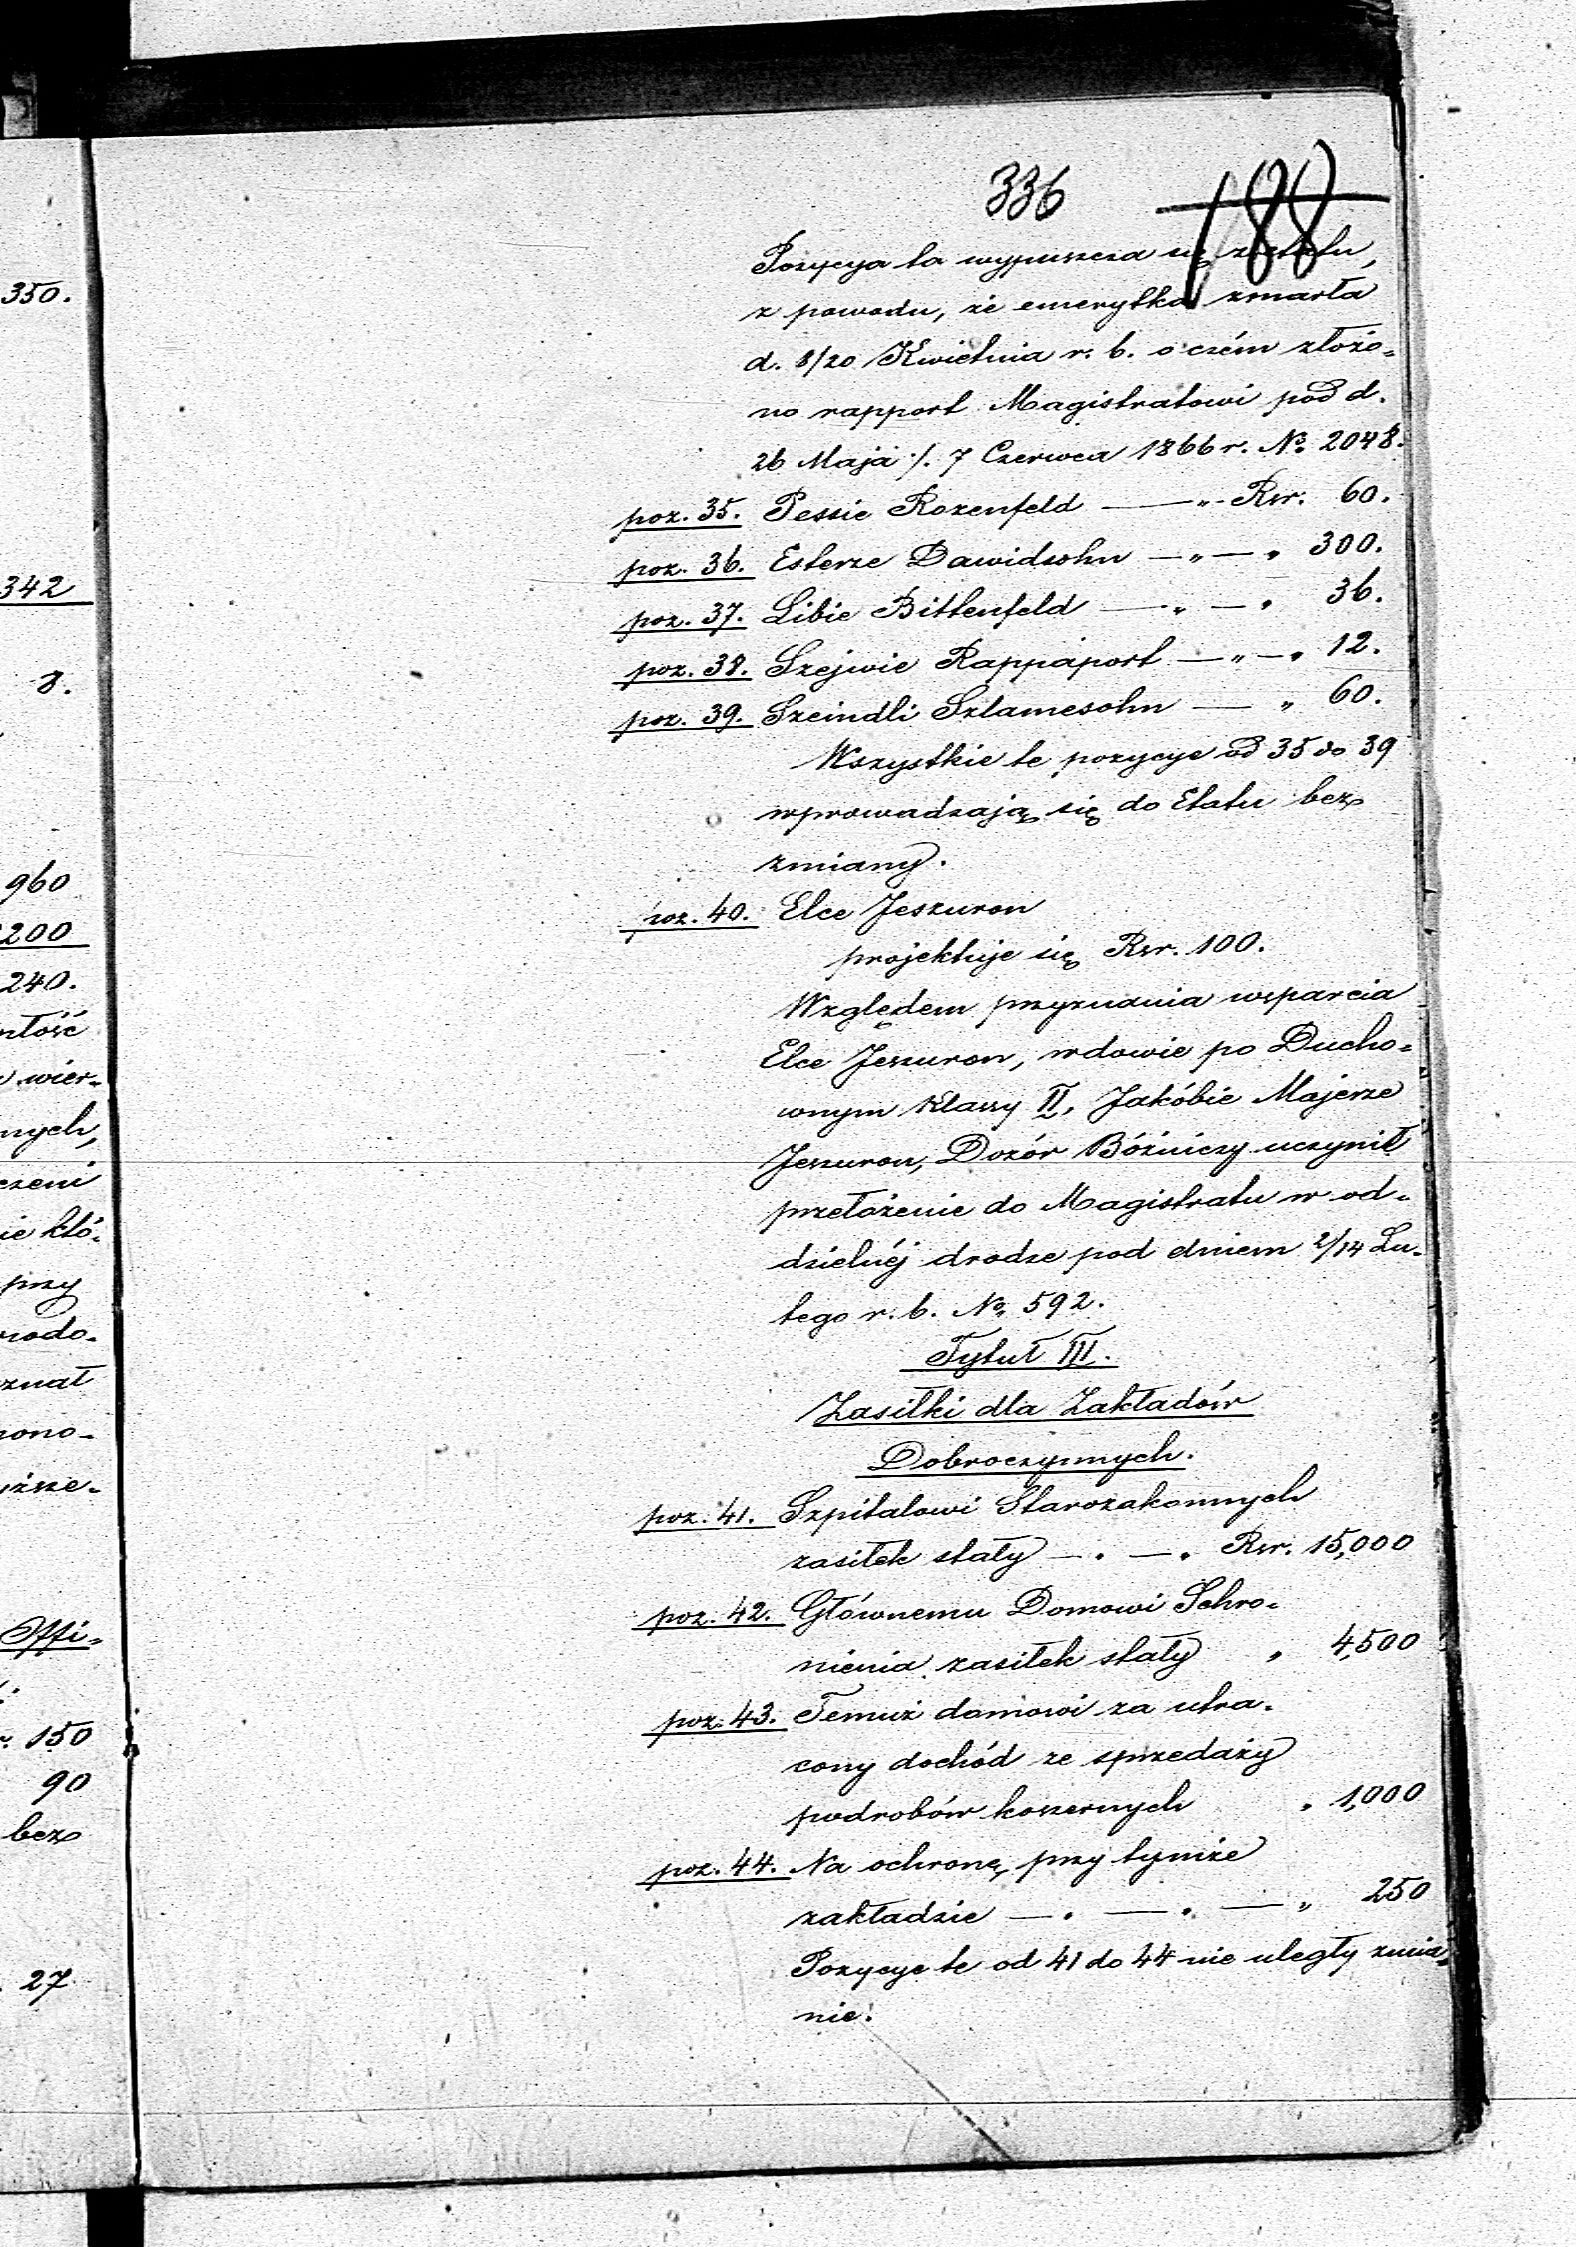 350.
342
8.
960
200
240.
wier-
nych,
czeni
ie któ-
przy
wodo-
znał
nono-
Offi-
150
90
bez
27
336
188
Pozycya ta wypuszcza się z etatu,
z powodu, że emerytka zmarła
d. 8/20 Kwietnia r. b. o czém złożo-
no rapport Magistratowi pod d.
26 Maja /. 7 Czerwca 1866 r. No. 2048.
poz. 35. Pessie Rozenfeld — „ Rsr. 60.
poz. 36. Esterze Dawidsohn — „ — „ 300.
poz. 37. Libie Bittenfeld — „ — „ 36.
poz. 38. Szejwie Rappaport — „ — „ 12.
poz. 39. Szeindli Szlamesohn — „ 60.
Wszystkie te pozycye od 35 do 39
wprowadzają się do Etatu bez
zmiany.
poz. 40. Elce Jeszuron
projektuje się Rsr. 100.
Względem przyznania wsparcia
Elce Jeszuron, wdowie po Ducho-
wnym klassy II, Jakóbie Majerze
Jeszuron, Dozór Bóżniczy uczynił
przełożenie do Magistratu w od-
dzielnéj drodze pod dniem 2/14 Lu-
tego r. b. No. 592.
Tytuł III.
Zasiłki dla Zakładów
Dobroczynnych.
poz. 41. Szpitalowi Starozakonnych
zasiłek stały — „ — „ Rsr. 15,000
poz. 42. Głównemu Domowi Schro-
nienia zasiłek stały „ 4,500
poz. 43. Temuż domowi za utra-
cony dochód ze sprzedaży
podrobów koszernych „ 1,000
poz. 44. Na ochronę przy tymże
zakładzie — „ — „ — „ 250
Pozycye te od 41 do 44 nie uległy zmia-
nie.